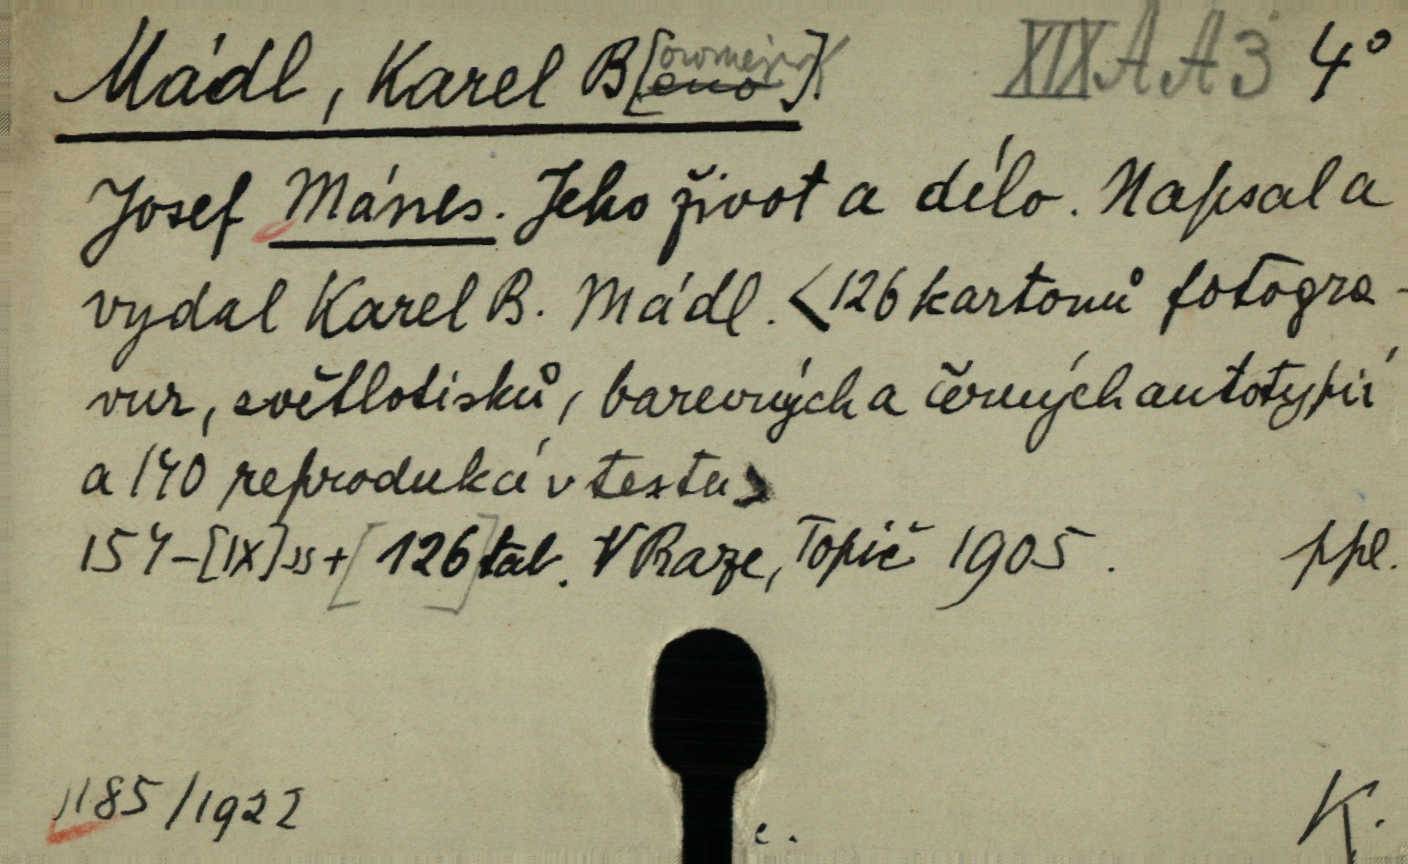 Mádl, Karel B[oromejský]. XIX A A 3 4°
Josef Mánes. Jeho život a dílo. Napsal a
vydal Karel B. Mádl. <126 kartonů fotogra-
vur, světlotisků, barevných a černých autotypií
a 140 reprodukcí v textu>
154-[IX] ss + [126] tab. V Praze, Topič 1905. ppl.
1185/1922
c. K.